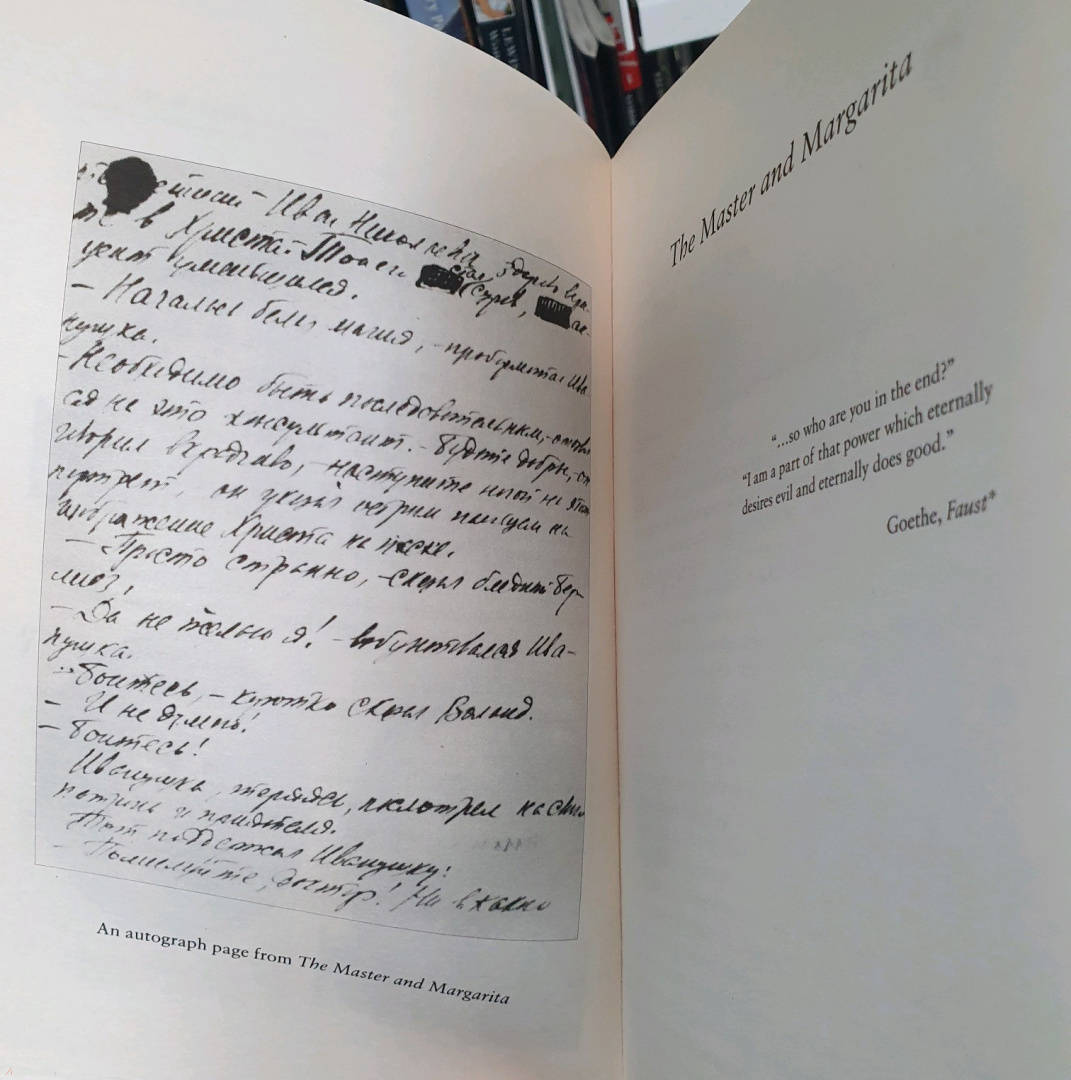 Иван Николаевич, здорово
в Христа. Тогда
уменьшился.
– Началась белая магия, – пробормотал Ива-
нушка.
– Необходимо быть последовательным, –
не это консультант. – Будьте добры, –
говорил вкрадчиво, – наступите ногой на этот
портрет, он указал острым пальцем на
изображение Христа на песке.
– Просто странно, – сказал бледный Бер-
лиоз.
– Да не желаю я! – взбунтовался Ива-
нушка.
– Боитесь, – коротко сказал Воланд.
– И не думаю!
– Боитесь!
Иванушка, теряясь, посмотрел на
и приятеля.
Тот поддержал Иванушку:
– Помилуйте, доктор! Ни в какого
An autograph page from The Master and Margarita
The Master and Margarita
“...so who are you in the end?”
“I am a part of that power which eternally
desires evil and eternally does good.”
Goethe, Faust*
LEWI